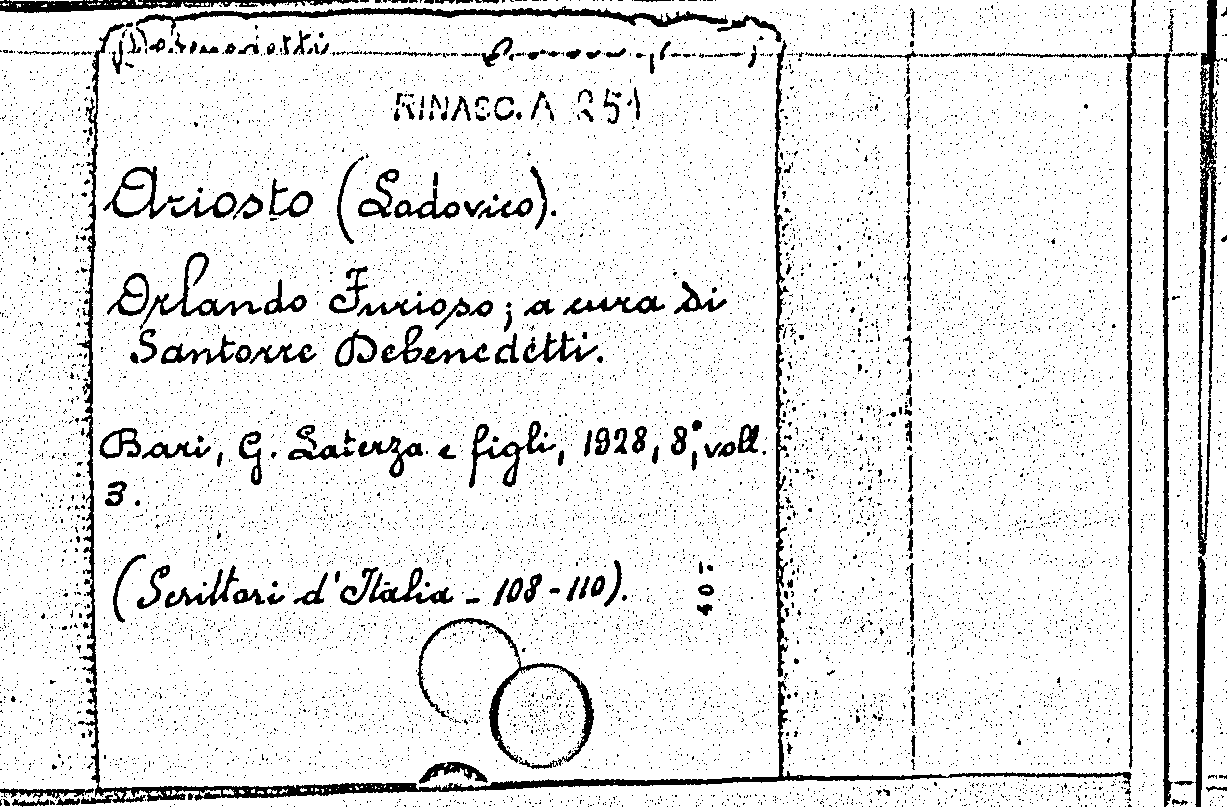 Debenedetti
RINASC. A 251
Ariosto (Lodovico).
Orlando Furioso; a cura di
Santorre Debenedetti.
Bari, G. Laterza e figli, 1928, 8°, voll.
3.
(Scrittori d'Italia - 108-110).
40: